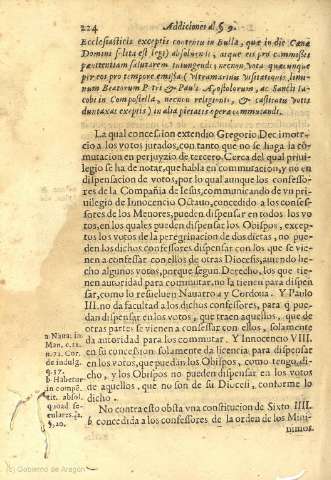 224 Addiciones al § 9.
Ecclesiasticis exceptis contentis in Bulla, quæ in die Cænæ
Domini solita est legi) absoluendi, atque eis pro commissis
pœnitentiam salutarem iniungendi; necnon vota quæcunque
per eos pro tempore emissa (vltramarinu visitationis limi-
num Beatorum Petri & Pauli Apostolorum, ac Sancti Ia-
cobi in Compostella, necnon religionis, & castitatis votis
duntaxat exeptis) in alia pietatis opera commutandi.
La qual concession extendio Gregorio Decimoter-
cio a los votos jurados, con tanto que no se haga la co-
mutacion en perjuyzio de tercero. Cerca del qual priui-
legio se ha de notar, que habla en commutacion, y no en
dispensacion de votos, por lo qual aunque los confesso-
res de la Compañia de Iesus, communicando de vn pri-
uilegio de Innocencio Octauo, concedido a los confes-
sores de los Menores, pueden dispensar en todos los vo
tos, en los quales pueden dispensar los Obispos, excep-
tus los votos de la peregrinacion de dos dietas, no pue-
den los dichos confessores dispensar con los que se vie-
nen a confessar con ellos de otras Diocesis, auiendo he-
cho algunos votos, porque segun Derecho, los que tie-
nen autoridad para commutar, no la tienen para dispen
sar, como lo resueluen Nauarro a y Cordoua. Y Paulo
III. no da facultad a los dichos confessores, para q̃ pue-
dan dispensar en los votos, que traen aquellos, que de
otras partes se vienen a confessar con ellos, solamente
da autoridad para los commutar. Y Innocencio VIII.
en su concession, solamente da licencia para dispensar
en los votos, que puedan los Obispos, como tengo di-
cho, y los Obispos no pueden dispensar en los votos
de aquellos, que no son de su Diocesi, conforme lo
dicho.
No contra esto obsta vna constitucion de Sixto IIII.
b concedida a los confessores de la orden de los Mini-
nimos.
a Naua. in
Man. c. 12.
n. 71. Cor.
de indulg.
q. 37.
b Habetur
in compẽ.
tit. absol.
quoad se-
culares.
§. 20.
(c) Gobierno de Aragón